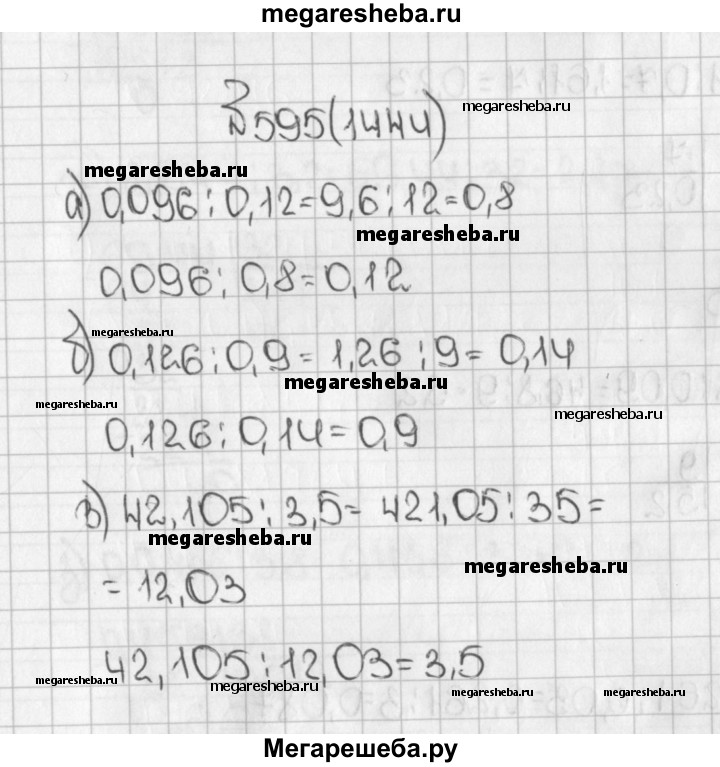 megaresheba.ru
№595(1444)
megaresheba.ru
megaresheba.ru
а) 0,096:0,12=9,6:12=0,8
megaresheba.ru
0,096:0,8=0,12
megaresheba.ru
б) 0,126:0,9=1,26:9=0,14
megaresheba.ru
megaresheba.ru
megaresheba.ru
0,126:0,14=0,9
в) 42,105:3,5=421,05:35=
megaresheba.ru
megaresheba.ru
=12,03
42,105:12,03=3,5
megaresheba.ru
megaresheba.ru
megaresheba.ru
megaresheba.ru
Мегарешеба.ру